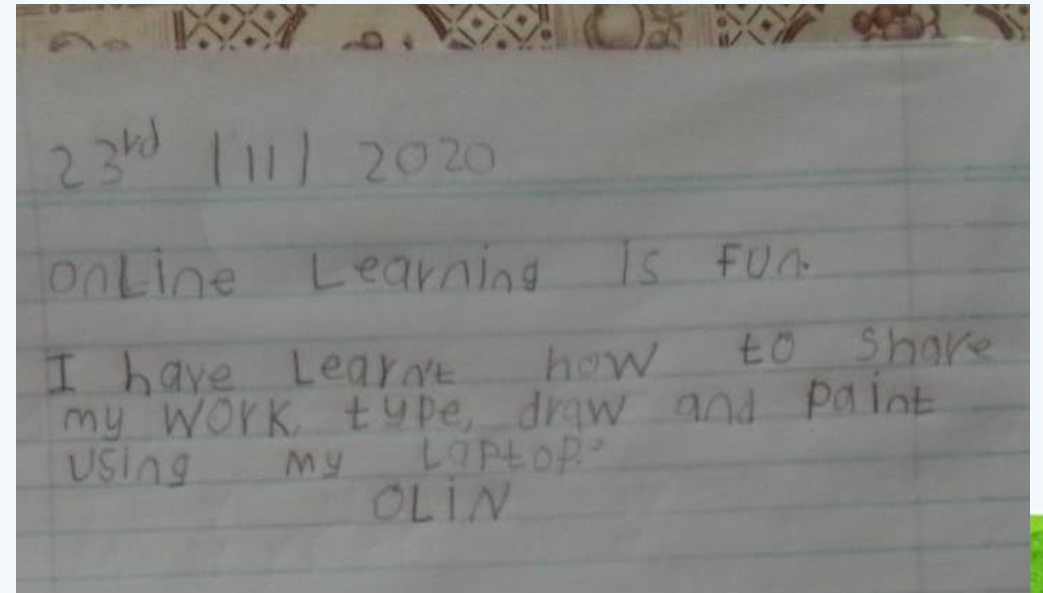 23rd | 11 | 2020
onLine Learning is fun.
I have Learn't how to share
my work, type, draw and paint
using my Laptop.
OLiN